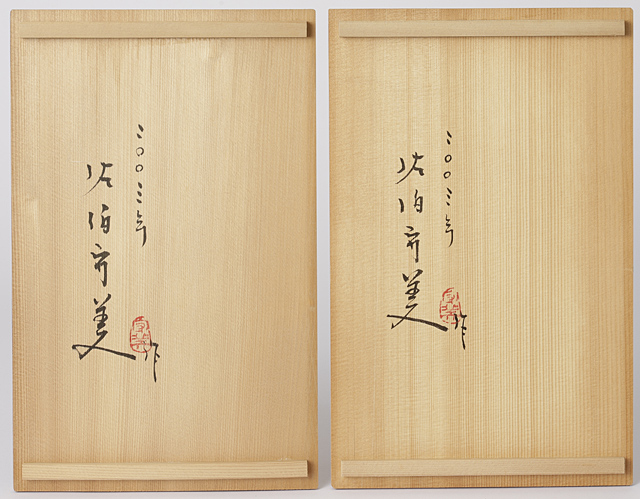 二〇〇三年
佐伯守美作
二〇〇三年
佐伯守美作